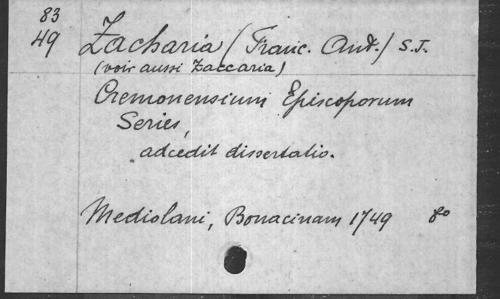 83
49
Zacharia (Franc. Ant.) S.J.
(voir aussi Zaccaria)
Cremonensium Episcoporum
Series,
adcedit dissertatio.
Mediolani, Bonacinam 1749 8o